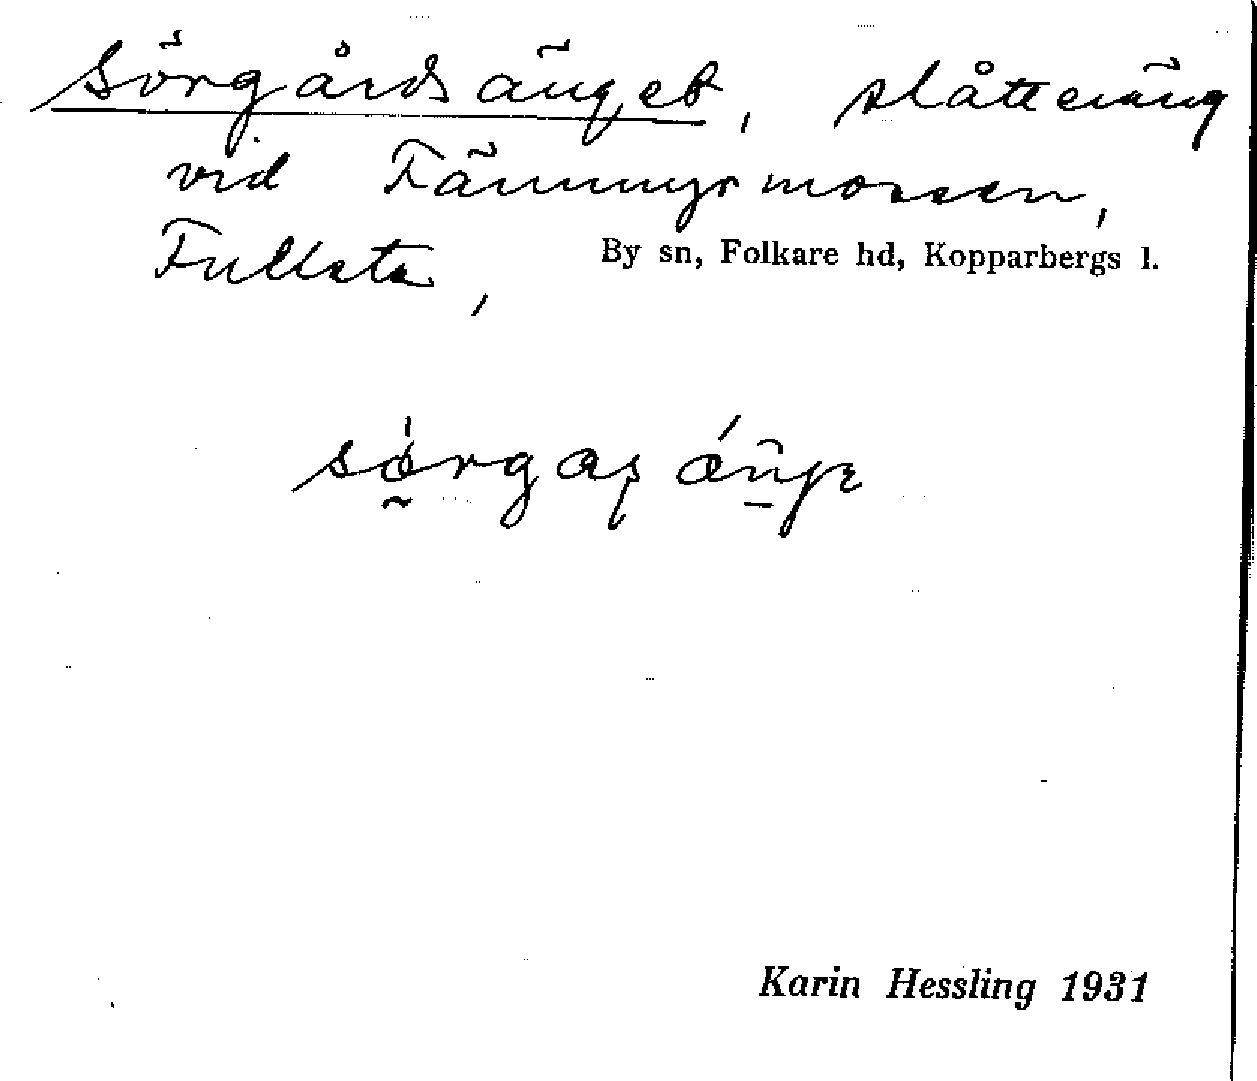 Sörgårdsänget, slåtteräng
vid Fänmyrmossen,
Fullsta, By sn, Folkare hd, Kopparbergs l.
Karin Hessling 1931